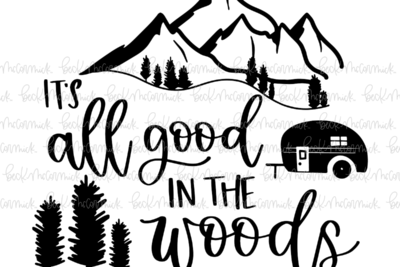 IT'S
all good
IN THE
woods